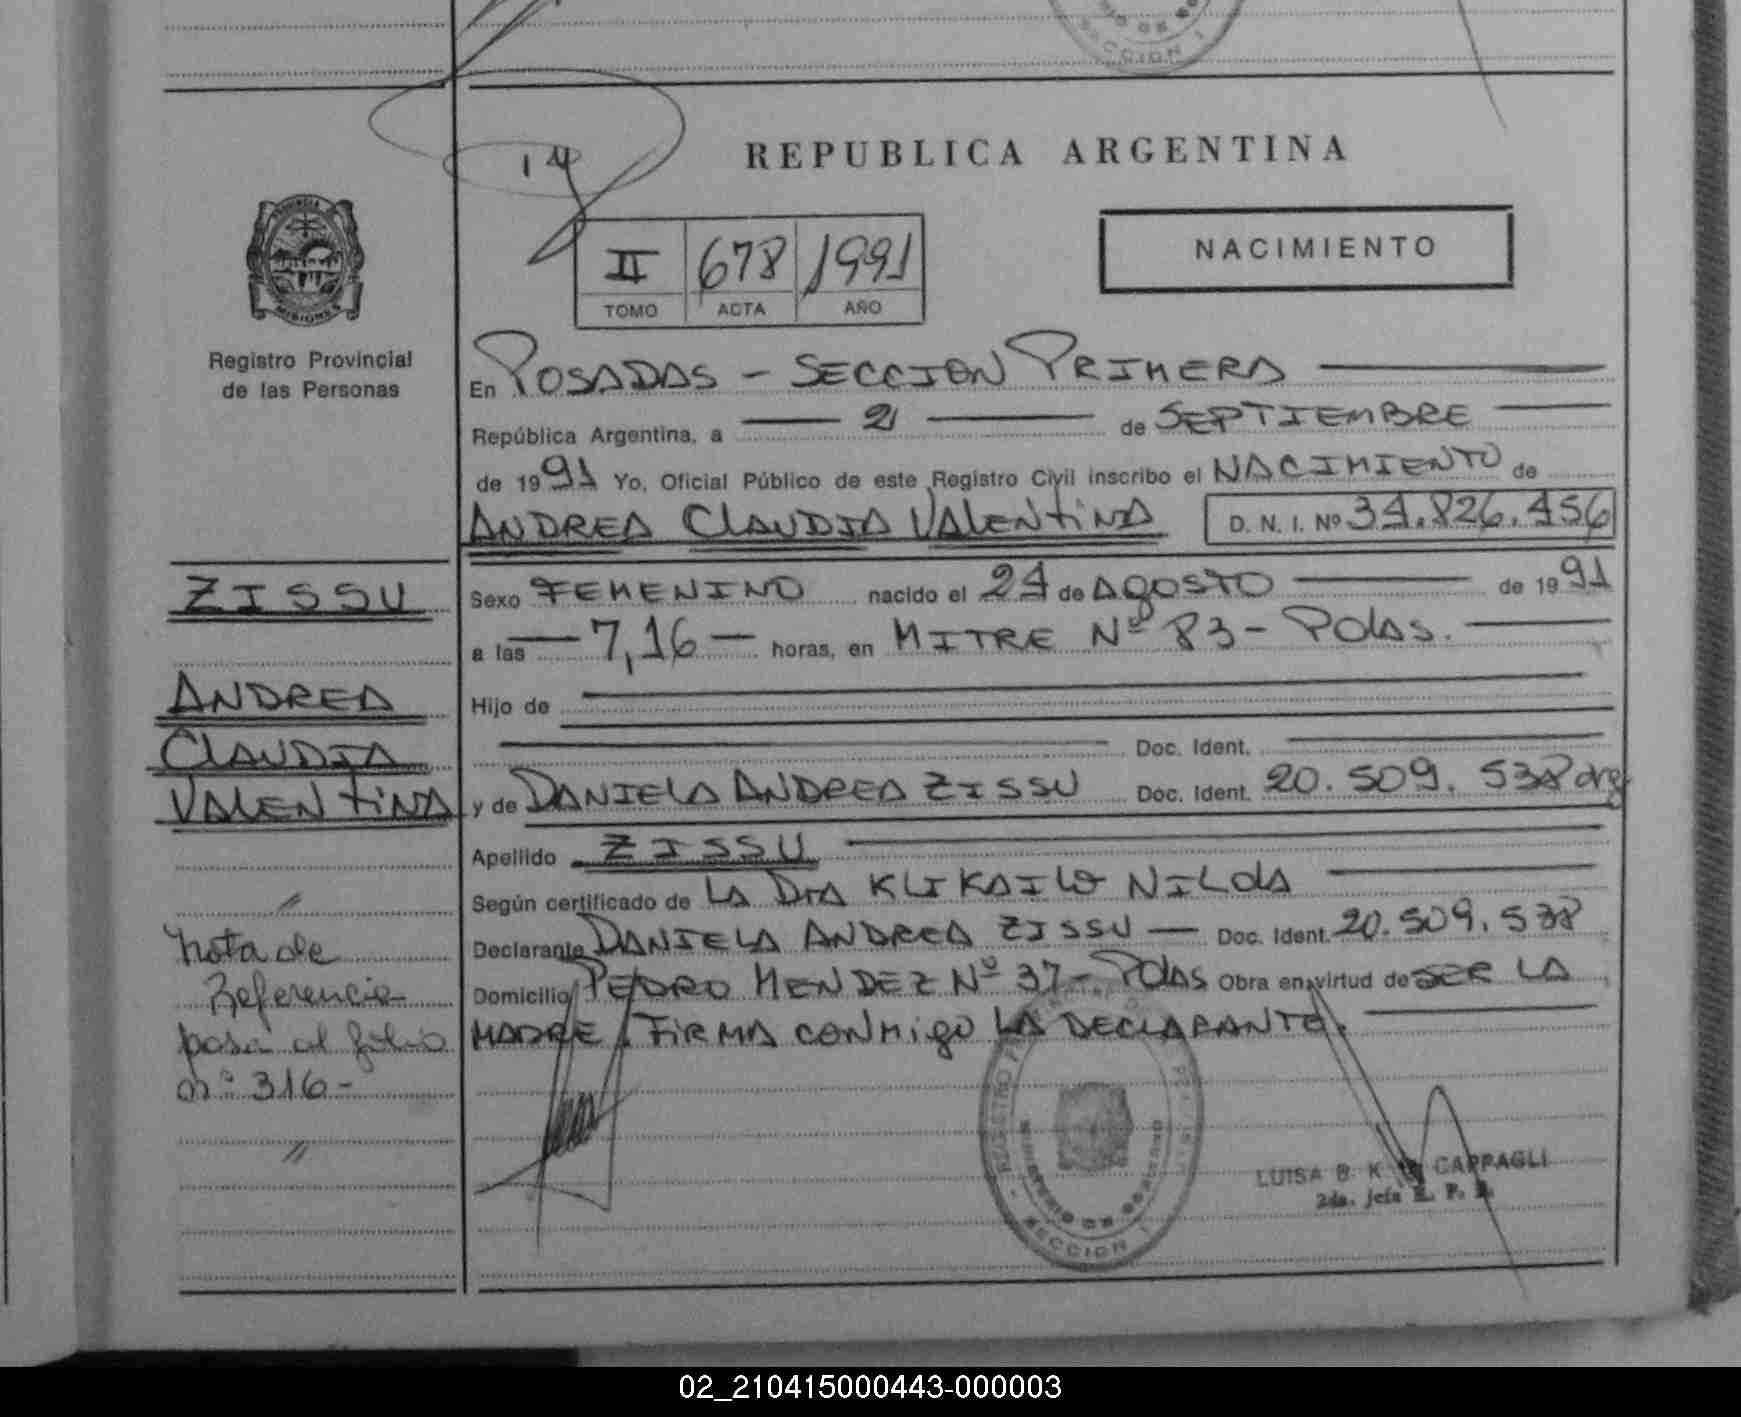 SECCION 1
14
REPUBLICA ARGENTINA
PROVINCIA
MISIONES
Registro Provincial
de las Personas
II 678 1991
TOMO ACTA AÑO
NACIMIENTO
En POSADAS - SECCION PRIMERA
República Argentina, a 2 de SEPTIEMBRE
de 1991 Yo, Oficial Público de este Registro Civil inscribo el NACIMIENTO de
ANDREA CLAUDIA VALENTINA D. N. I. Nº 34.826.456
ZISSU
ANDREA
CLAUDIA
VALENTINA
Sexo FEMENINO nacido el 24 de AGOSTO de 1991
a las 7,16 horas, en MITRE Nº 83 - Pdas.
Hijo de
Doc. Ident.
y de DANIELA ANDREA ZISSU Doc. Ident. 20.509.538 arg.
Apellido ZISSU
Según certificado de LA Dra KLIKAILO NILDA
Declarante DANIELA ANDREA ZISSU - Doc. Ident. 20.509.538
Domicilio PEDRO MENDEZ Nº 37 - Pdas Obra en virtud de SER LA
MADRE. FIRMA CONMIGO LA DECLARANTE.
Nota de
Referencia
pasa al folio
nº 316-
SECCION 1
LUISA B. K CAPPAGLI
2da. Jefa R. P.
02_210415000443-000003